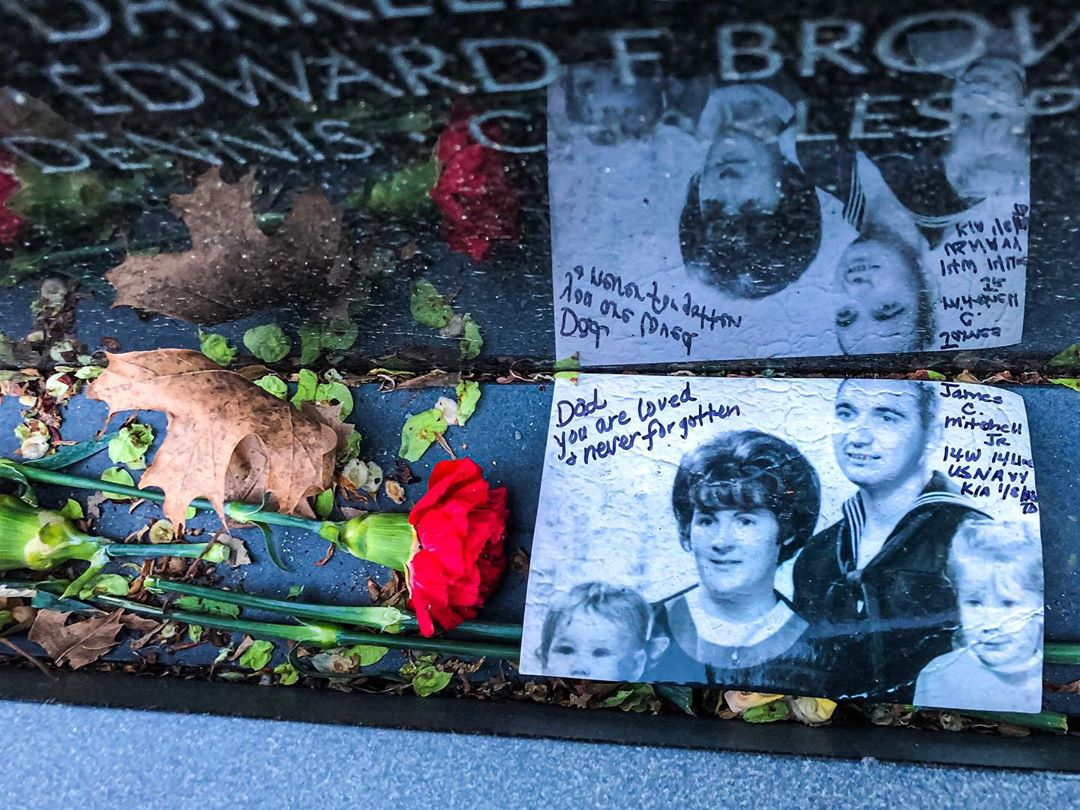 EDWARD F BROW
DENNIS C LES P
Dad
you are loved
& never forgotten
James
C.
Mitchell
Jr
14W
US NAVY
KIA